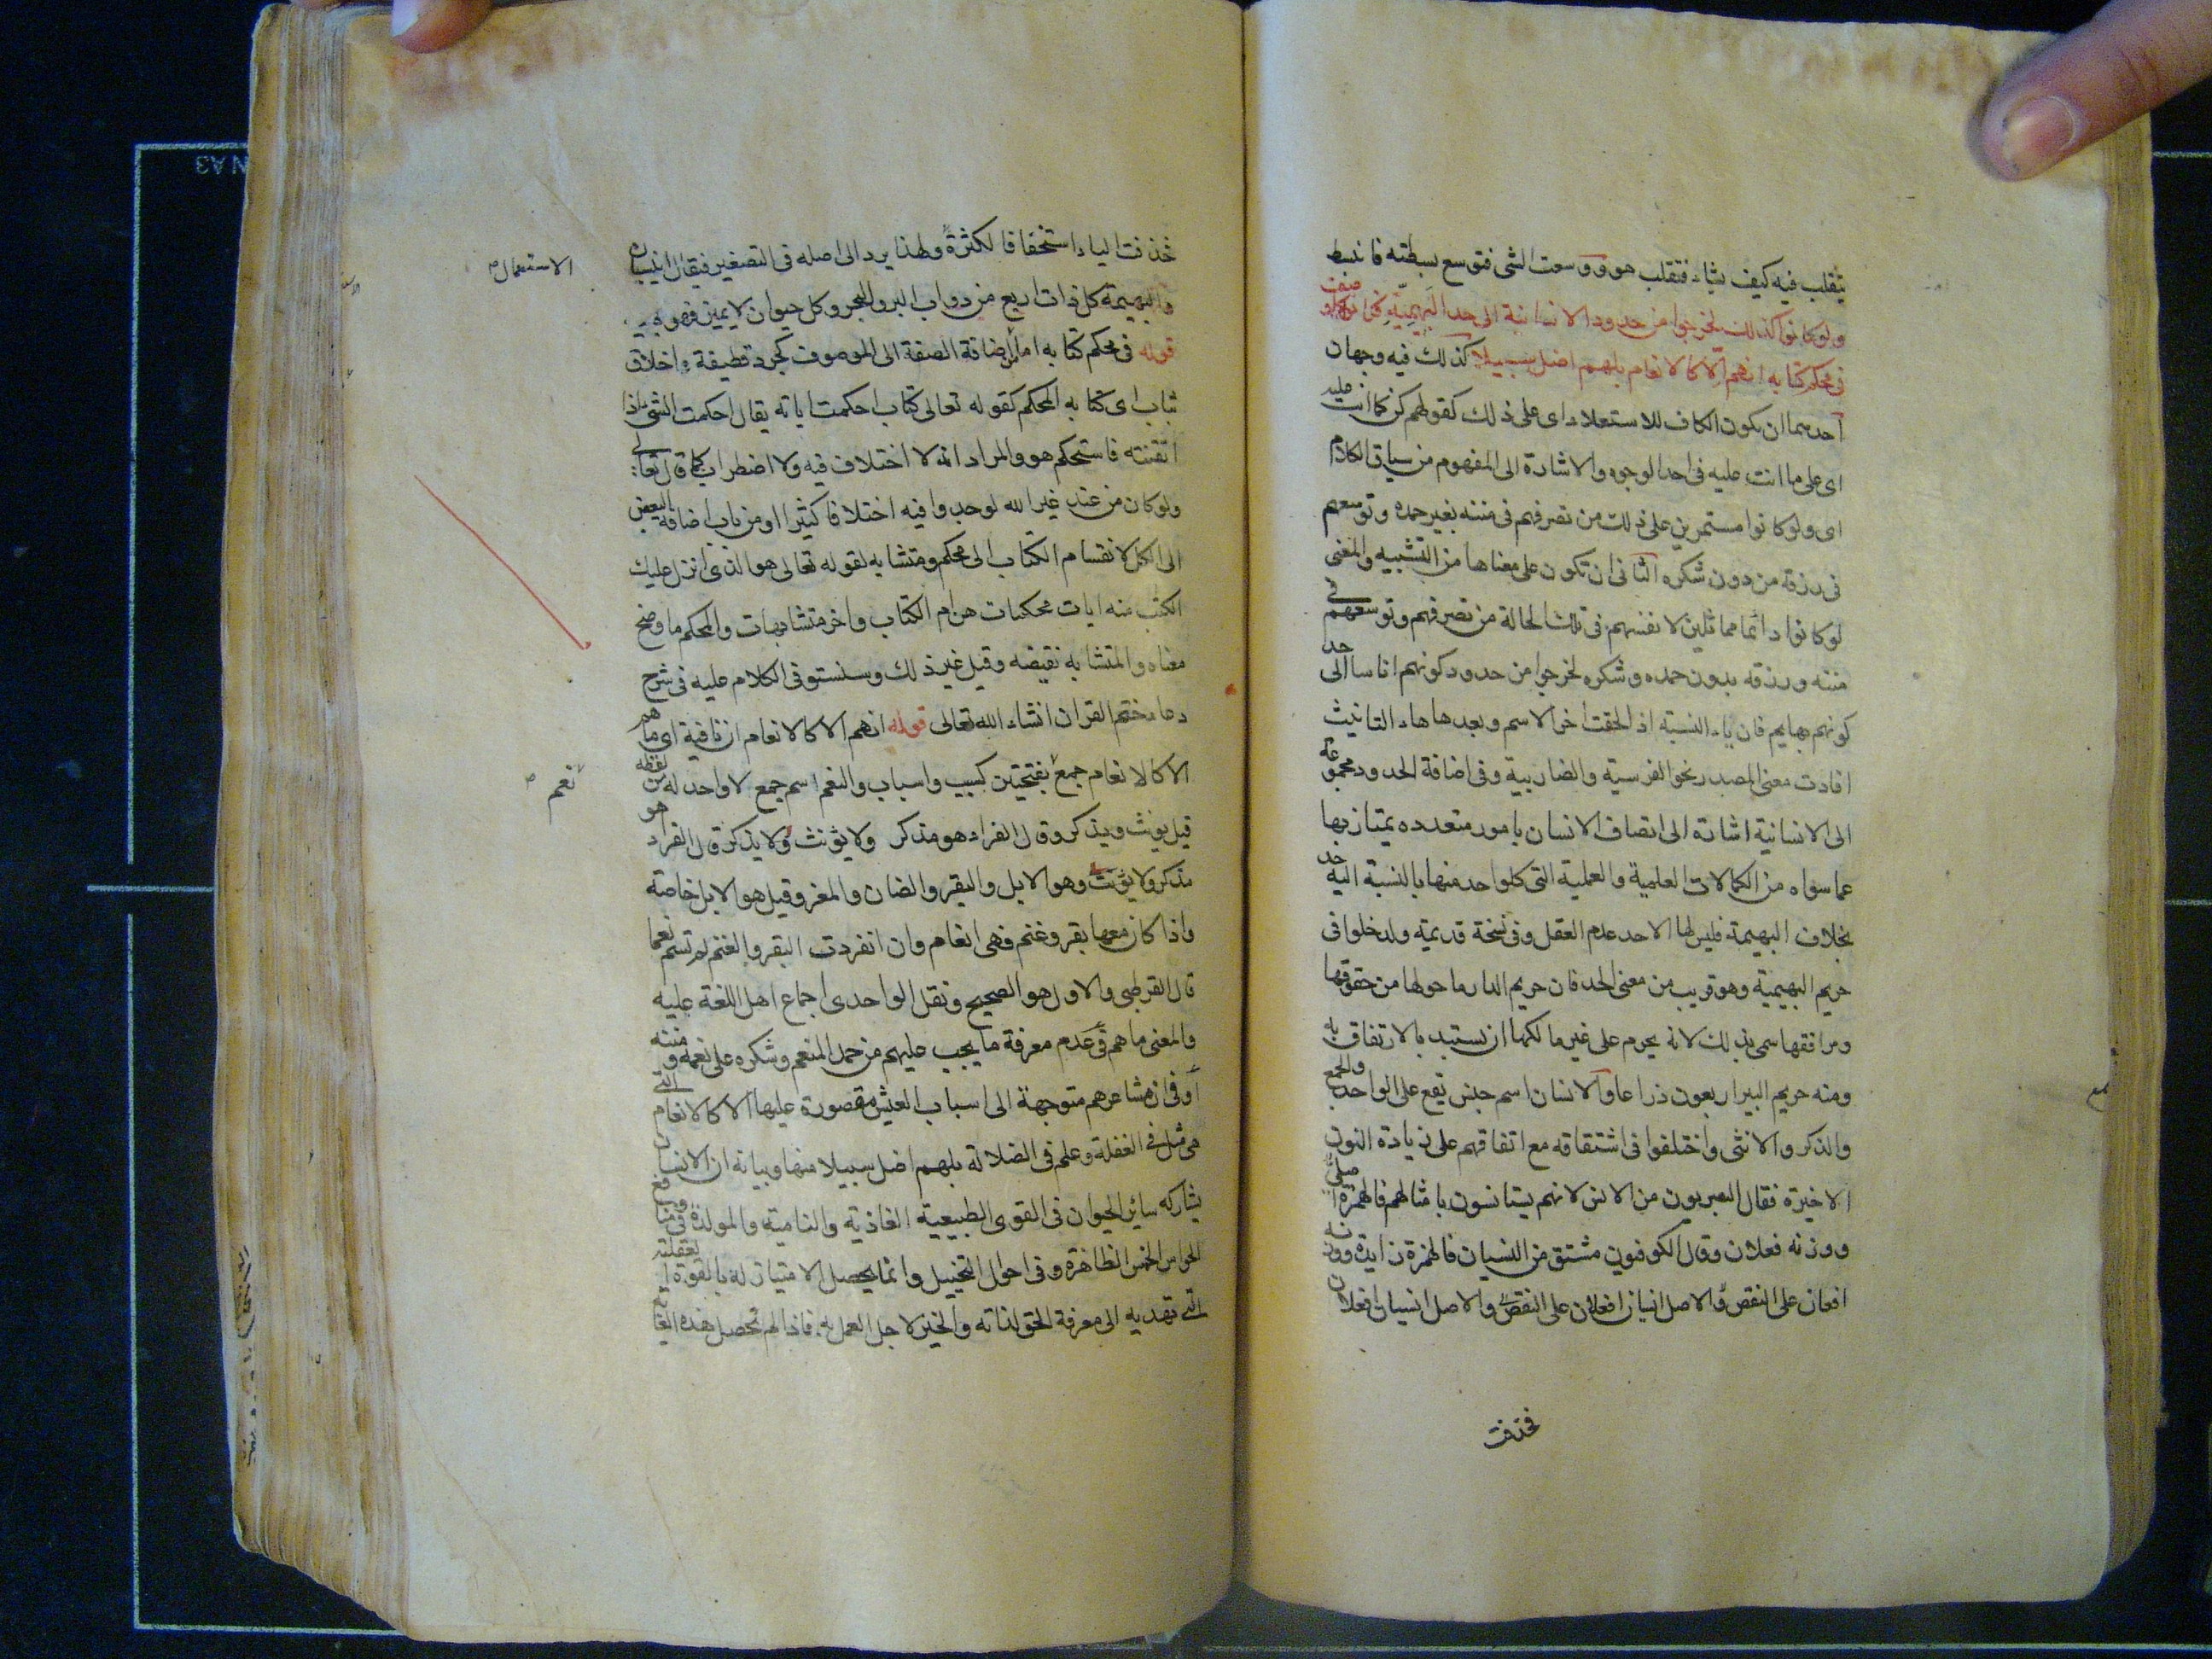 يتقلب فيه كيف يشاء فتقلب هو ووسعت الشى فتوسع بسطته فانبسط
ولو كانوا كذلك لخرجوا من حدود الانسانية الى حد البهيمية فكانوا كما وصف
فى محكم كتابه انهم الا كالانعام بل هم اضل سبيلا كذلك فيه وجهان
احدهما ان يكون الكاف للاستعلاء اى على ذلك كقولهم كن كما انت عليه
اى على ما انت عليه فى احد الوجوه والاشارة الى المفهوم من سياق الكلام
اى ولو كانوا مستمرين على ذلك من تصرفهم فى مننه بغير حمده وتوسعهم
فى رزقه من دون شكره الثانى ان تكون على معناها من التشبيه والمعنى
لو كانوا دائما مماثلين لانفسهم فى تلك الحالة من تصرفهم وتوسعهم فى
مننه ورزقه بدون حمده وشكره لخرجوا من حدود كونهم اناسا الى حد
كونهم بهايم فان ياء النسبة اذا لحقت اخر الاسم وبعدها هاء التانيث
افادت معنى المصدر نحو الفرسية والضاربية وفى اضافة الحدود مجموعة
الى الانسانية اشارة الى اتصاف الانسان بامور متعدده يمتاز بها
عما سواه من الكمالات العلمية والعملية التى كل واحد منها بالنسبة اليه حد
بخلاف البهيمة فليس لها الا حد عدم العقل وفى نسخة قديمة ولدخلوا فى
حريم البهيمية وهو قريب من معنى الحد فان حريم الدار ما حولها من حقوقها
ومرافقها سمى بذلك لانه يحرم على غير مالكها ان يستبد بالارتفاق به
ومنه حريم البير اربعون ذراعا والانسان اسم جنس يقع على الواحد والجمع
والذكر والانثى واختلفوا فى اشتقاقه مع اتفاقهم على زيادة النون
الاخيرة فقال البصريون من الانس لانهم يستانسون بامثالهم فالهمزة اصلية
ووزنه فعلان وقال الكوفيون مشتق من النسيان فالهمزة زايدة ووزنه
افعان على النقص والاصل انسيان افعلان على النقص والاصل انسيان افعلان
فحذفت
فحذفت الياء استخفافا لكثرة ولهذا يرد الى اصله فى التصغير فيقال انيسيان
الاستعمال
والبهيمة كل ذات اربع من دواب البر والبحر وكل حيوان لا يميز فهو بهيمة
قوله فى محكم كتابه اما اضافة الصفة الى الموصوف كجرد قطيفة واخلاق
ثياب اى كتابه المحكم كقوله تعالى كتاب احكمت اياته يقال احكمت الشى اذا
اتقنته فاستحكم هو والمراد انه لا اختلاف فيه ولا اضطراب كما قال تعالى
ولو كان من عند غير الله لوجدوا فيه اختلافا كثيرا او من باب اضافة البعض
الى الكل لانقسام الكتاب الى محكم ومتشابه لقوله تعالى هو الذى انزل عليك
الكتب منه ايات محكمات هن ام الكتاب واخر متشابهات والمحكم ما وضح
معناه والمتشابه نقيضه وقيل غير ذلك وسنستوفى الكلام عليه فى شرح
دعاء ختم القران انشاء الله تعالى قوله انهم الا كالانعام ان نافية اى ما هم
الا كالانعام جمع بفتحتين كسبب واسباب والنعم اسم جمع لا واحد له من لفظه
نعم
قيل يونث ويذكر وقال الفراء هو مذكر ولا يونث ولا يذكر قال الفراء هو
مذكر ولا يونث وهو الابل والبقر والضان والمعز وقيل هو الابل خاصة
واذا كان معها بقر وغنم فهى انعام وان انفردت البقر والغنم لم تسم نعما
قال القرطبى والاول هو الصحيح ونقل الواحدى اجماع اهل اللغة عليه
والمعنى ما هم فى عدم معرفة ما يجب عليهم من حمد المنعم وشكره على نعمه ومننه
او فى ان مشاعرهم متوجهة الى اسباب العيش مقصورة عليها الا كالانعام التى
هى مثل فى الغفلة وعلم فى الضلالة بل هم اضل سبيلا منها وبيانه ان الانسان
يشاركه ساير الحيوان فى القوى الطبيعية الغاذية والنامية والمولدة وفى منافع
الحواس الخمس الظاهرة وفى احوال التخييل وانما يحصل الامتياز له بالقوة العقلية
التى تهديه الى معرفة الحق لذاته والخير لاجل العمل به فاذا لم تحصل هذه الغاية